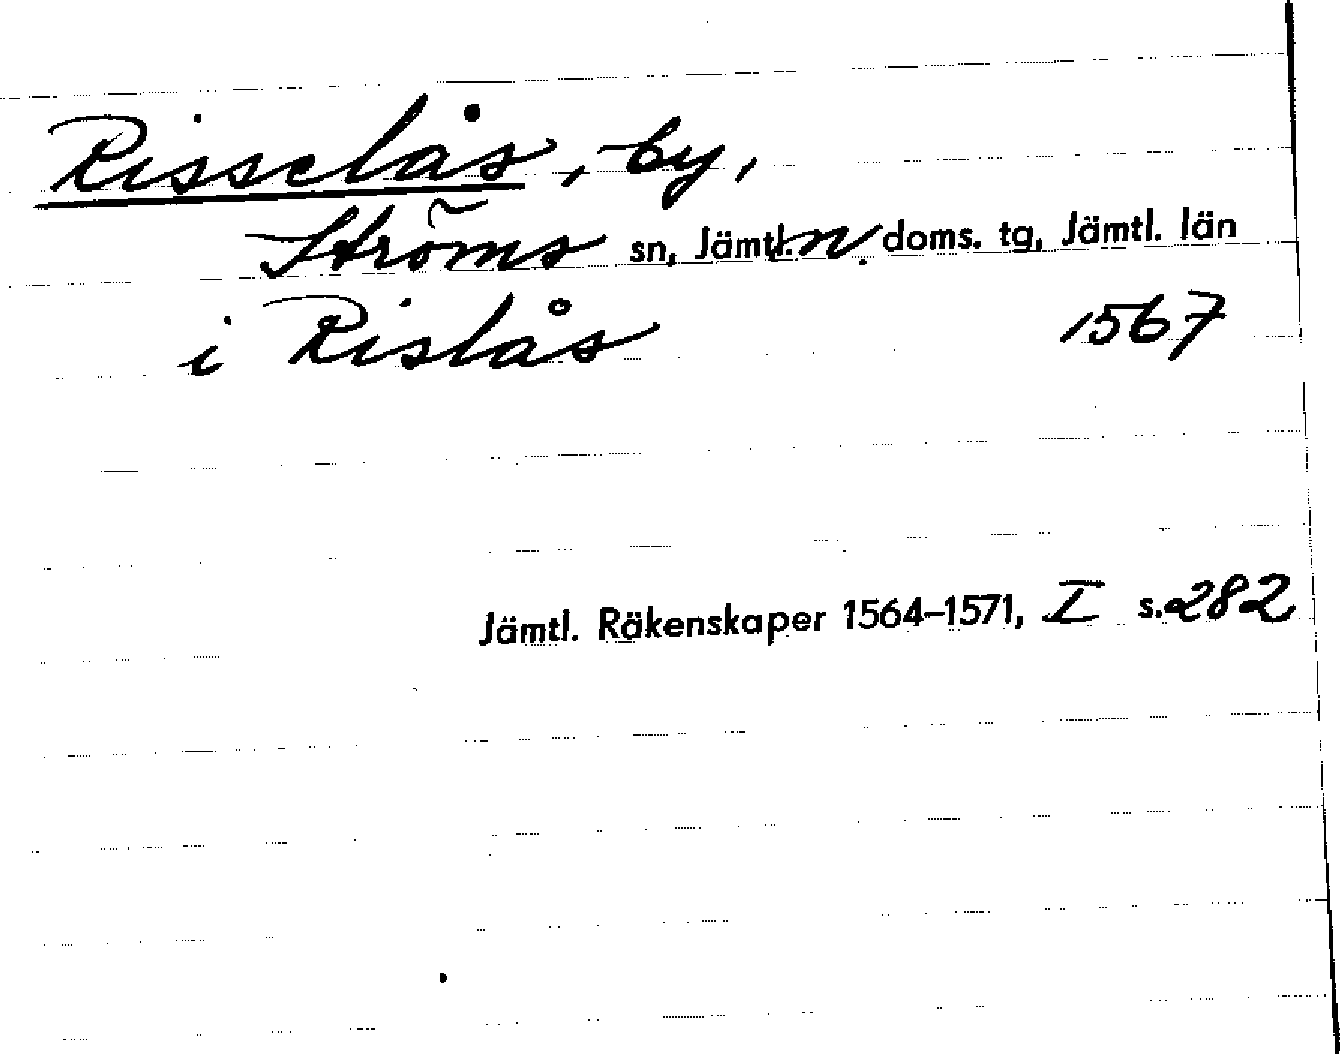 Risselås, by,
Ströms sn, Jämtl. n. doms. tg, Jämtl. län
i Rislås 1567
Jämtl. Räkenskaper 1564-1571, I s. 282